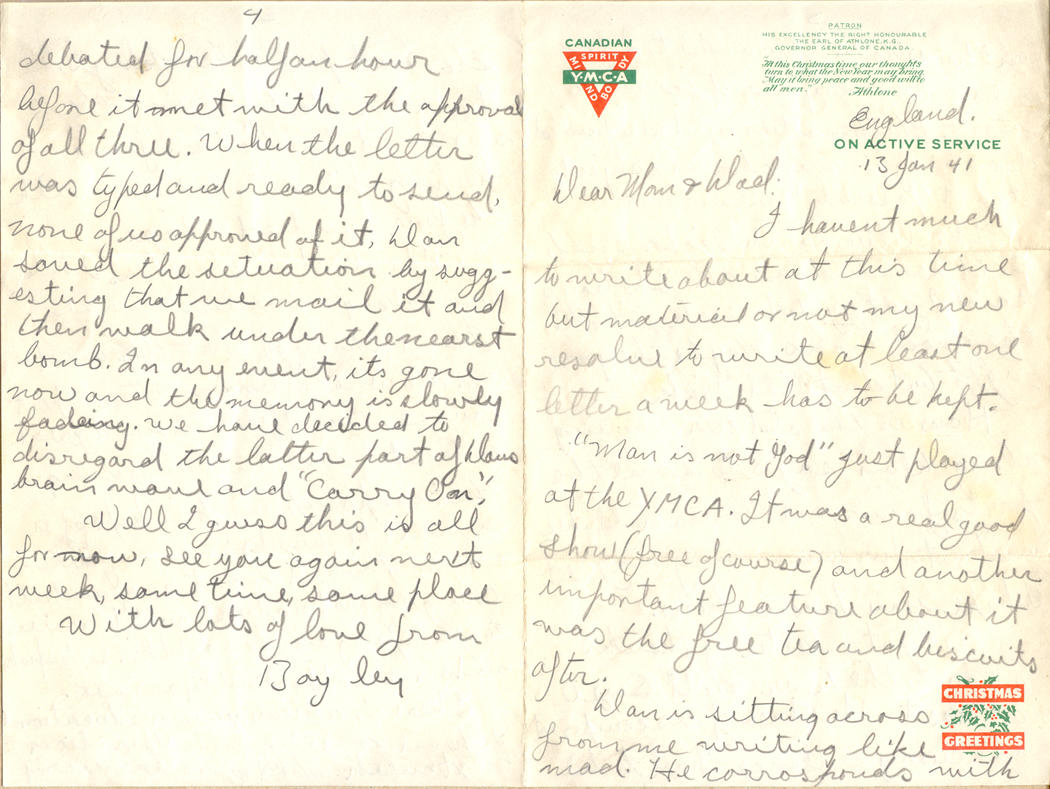 4
debated for half an hour
before it met with the approval
of all three. When the letter
was typed and ready to send,
none of us approved of it, Dan
saved the setuation by sugg-
esting that we mail it and
then walk under the nearst
bomb. In any event, its gone
now and the memory is slowly
fadeing. We have decided to
disregard the latter part of Dans
brain wave and "Carry On".
Well I guess this is all
for now, see you again next
week, same time, same place
With lots of love from
CANADIAN
SPIRIT
MIND
BODY
Y·M·C·A
PATRON
HIS EXCELLENCY THE RIGHT HONOURABLE
THE EARL OF ATHLONE, K.G.
GOVERNOR GENERAL OF CANADA
"At this Christmas time our thoughts
turn to what the New Year may bring.
May it bring peace and good will to
all men."
Athlone
England.
ON ACTIVE SERVICE
13 Jan 41
Dear Mom & Dad:
I havent much
to write about at this time
but material or not my new
resolve to write at least one
letter a week has to be kept.
"Man is not God" just played
at the YMCA. It was a real good
show (free of course) and another
important feature about it
was the free tea and biscuits
after.
Dan is sitting across
from me writing like
mad. He corrosponds with
CHRISTMAS
GREETINGS